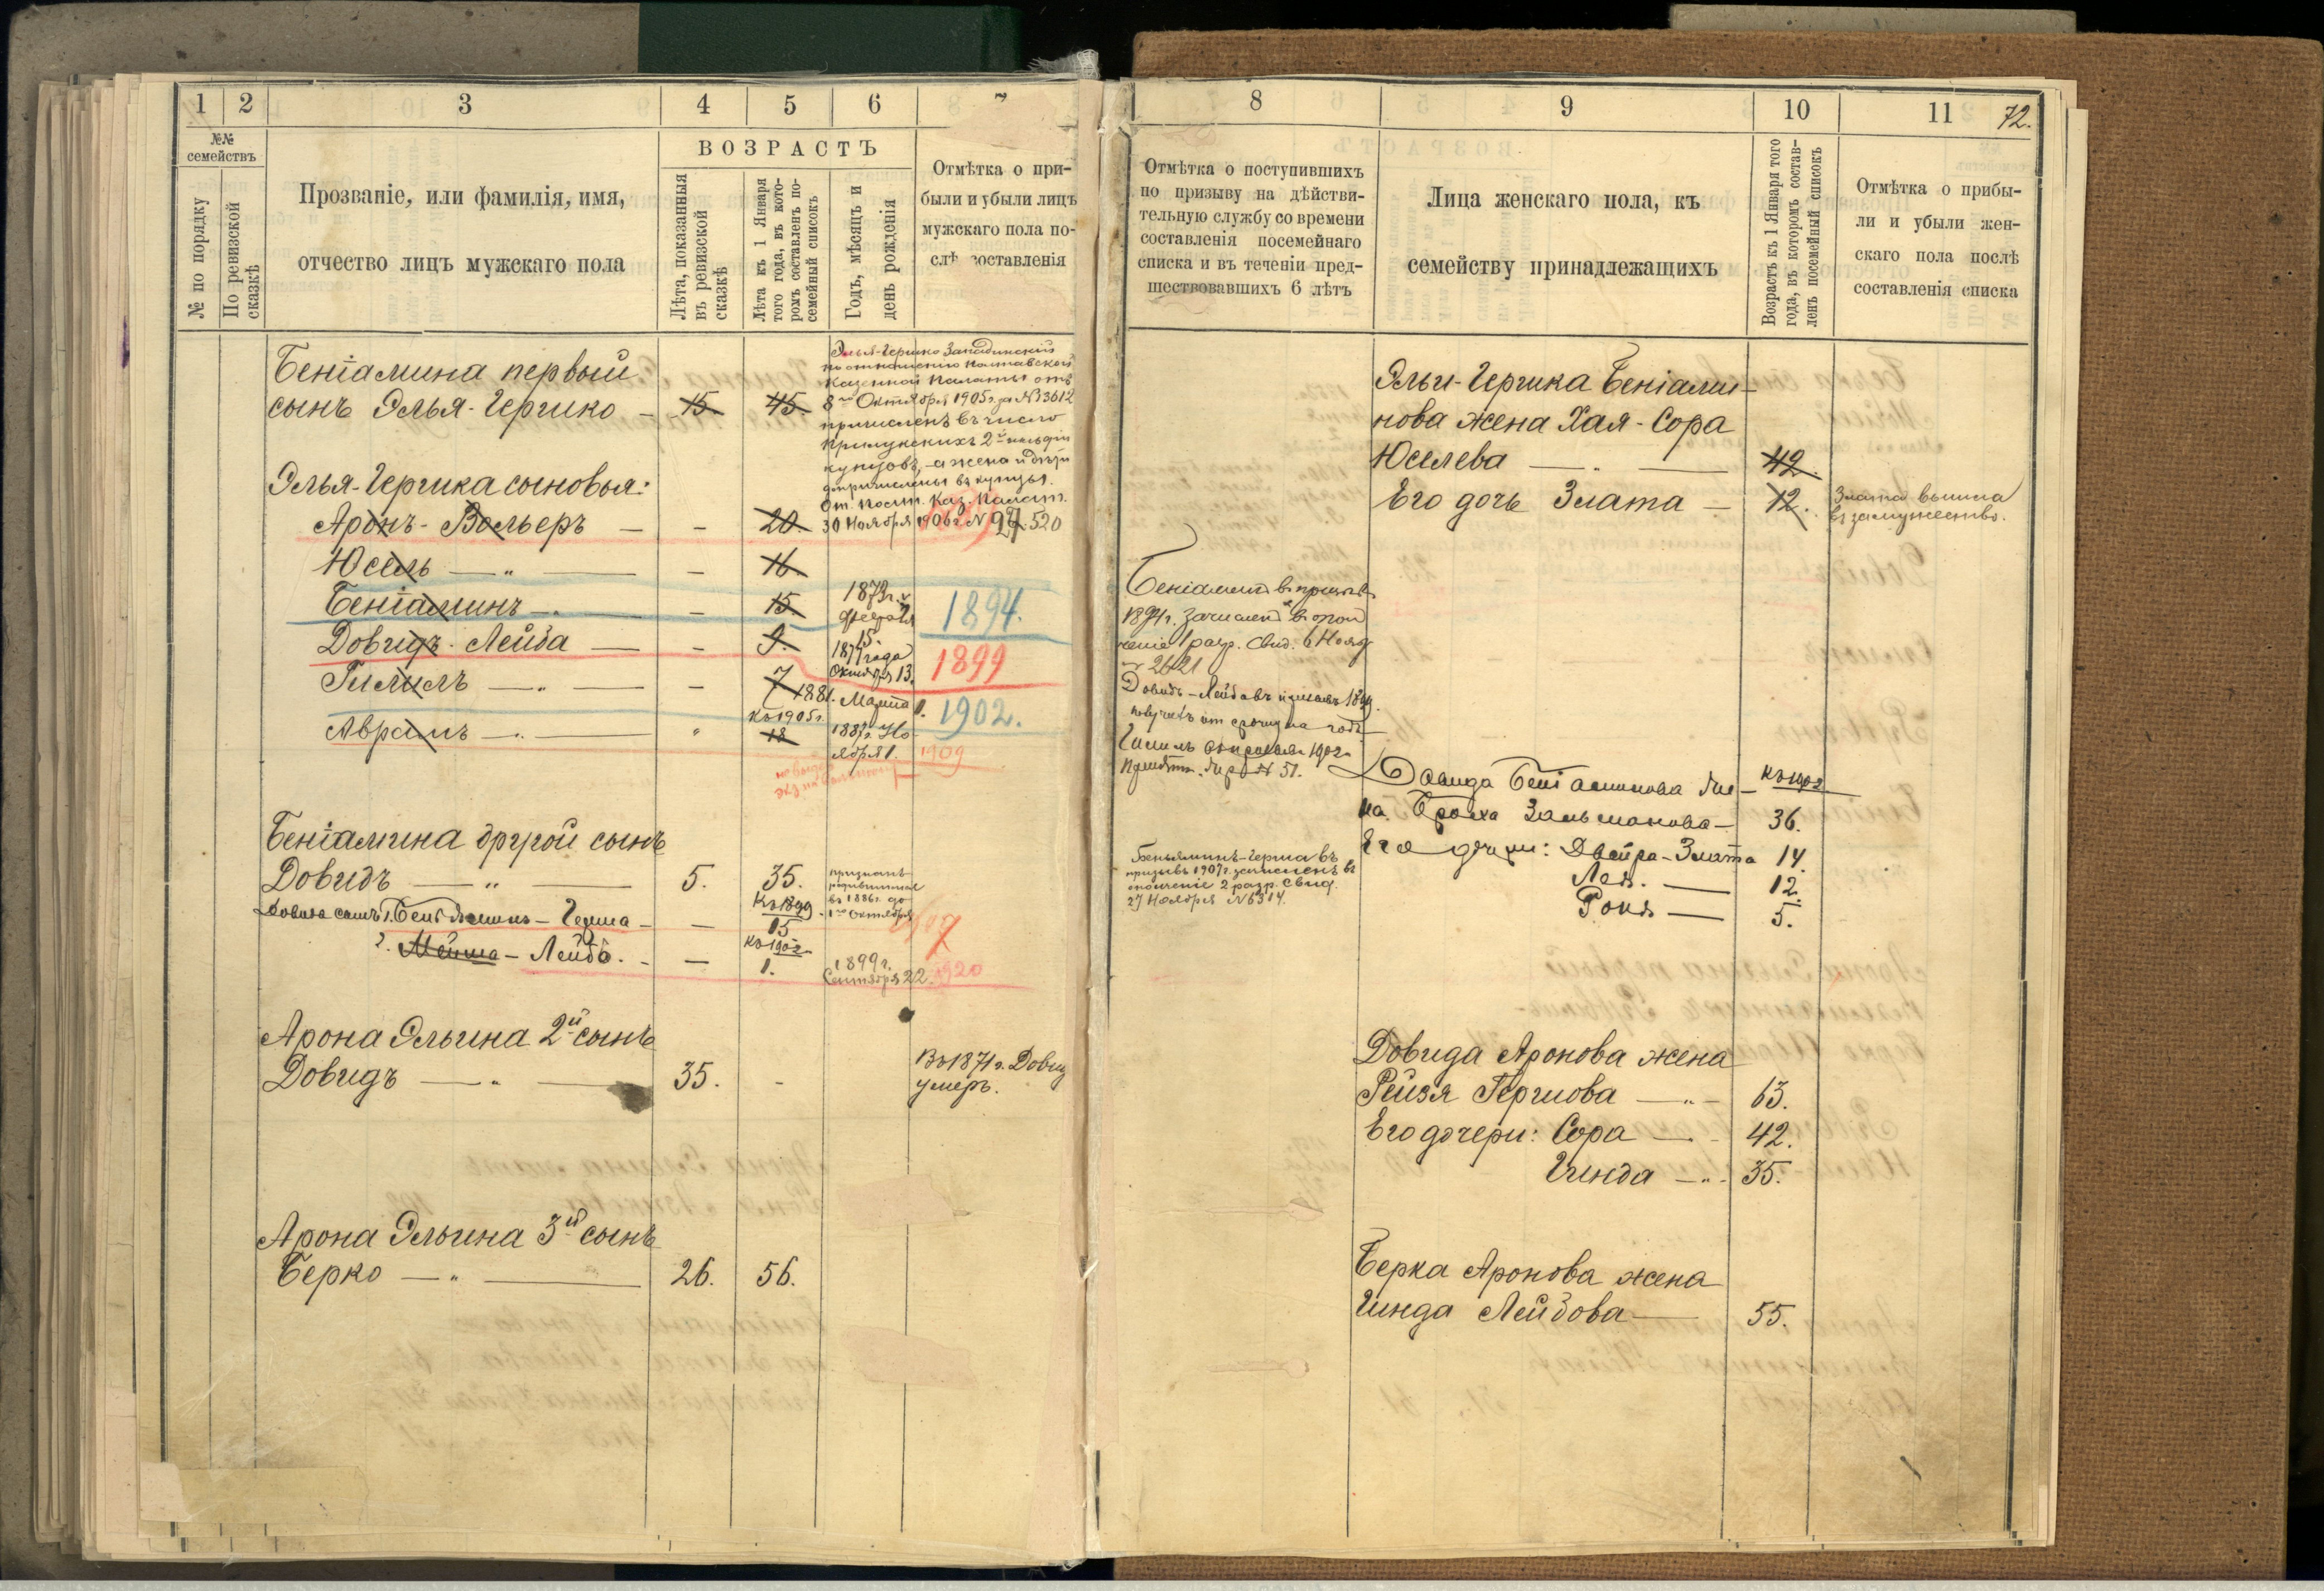 1 2 3 4 5 6 7
№№ семействъ
№ по порядку
По ревизской сказкѣ
Прозваніе, или фамилія, имя,
отчество лицъ мужскаго пола
ВОЗРАСТЪ
Лѣта, показанныя
въ ревизской
сказкѣ
Лѣта къ 1 Января
того года, въ кото-
ромъ составленъ по-
семейный списокъ
Годъ, мѣсяцъ и
день рожденія
Отмѣтка о при-
были и убыли лицъ
мужскаго пола по-
слѣ составленія
Беніамина первый
сынъ Элья-Гершко — 15 45.
Элья-Гершко
по отношенію Полтавской
Казенной Палаты отъ
8го Октября 1905 г. за №13612
причисленъ въ число
Прилукскихъ 2й гильдіи
купцовъ, а жена и дѣти
причислены въ купцы.
От. Полт. Каз. Палат.
30 Ноября 1906 г. №
Элья-Гершка сыновья:
Аронъ-Вольеръ — - 20.
Юсель — „ — - 16.
Беніаминъ — - 15. 1879 г.
февраля
15.
1894.
Довидъ-Лейба — - 9. 187 года
Октября 13.
1899
Гилилъ — „ — - 7 1881. Марта 1.
1902.
Аврамъ — „ — „ Къ 1905 г.
18 1887 г. Но-
ября 1.
1909
Беніамина другой сынъ
Довидъ — „ — 5. 35.
признанъ
родившимся
въ 1886 г. до
1го Октября
Довида сынъ 1. Беніаминъ-Герша — — Къ 1899
15
2. Мейша-Лейба. — — Къ 1902
1. 1899 г.
Сентября 22. 1920
Арона Эльина 2й сынъ
Довидъ — „ — 35. -
Въ 1871 г. Довид
умеръ.
Арона Эльина 3й сынъ
Берко — „ — 26. 56.
8 9 10 11 72.
Отмѣтка о поступившихъ
по призыву на дѣйстви-
тельную службу со времени
составленія посемейнаго
списка и въ теченіи пред-
шествовавшихъ 6 лѣтъ
Лица женскаго пола, къ
семейству принадлежащихъ
Возрастъ къ 1 Января того
года, въ которомъ состав-
ленъ посемейный списокъ
Отмѣтка о прибы-
ли и убыли жен-
скаго пола послѣ
составленія списка
Эльи-Гершка Беніами-
нова жена Хая-Сора
Юселева — „ — 42.
Его дочь Злата — 12.
Злата вышла
въ замужество.
Беніаминъ въ призывъ
1894 г. зачисленъ въ опол
ченіе 1 разр. Свид. 6 Нояб
№ 2621
Довидъ-Лейба въ призывъ 1899 г.
получилъ отсрочку на годъ
Гилилъ
№ 51.
Давида Беніаминова Же- Къ 1902
на Броха Зальманова — 36.
Его дочери: Двейра-Злата 14.
Лея. — 12.
Роня — 5.
Беньяминъ-Герша въ
призывъ 1907 г. зачисленъ въ
ополченіе 2 разр. Свид.
27 Ноября №6314.
Довида Аронова жена
Рейзя Гершова — „ — 63.
Его дочери: Сора — 42.
Гинда — „ - 35.
Берка Аронова жена
Гинда Лейбова — 55.